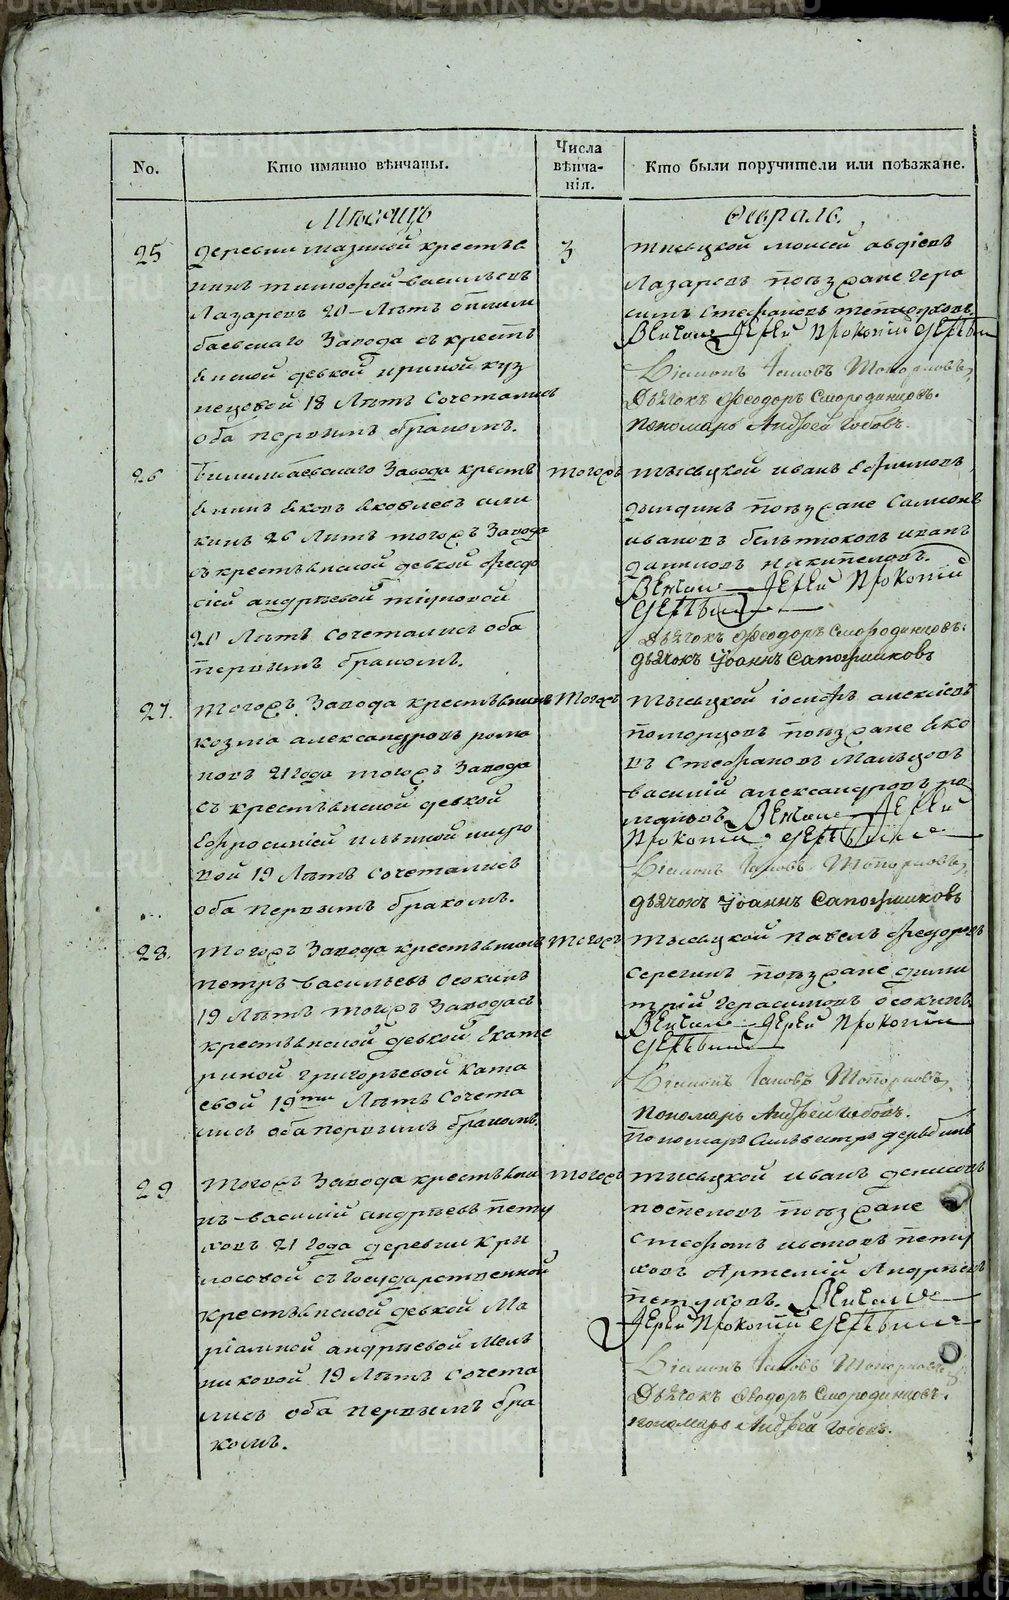 No.
Кто имянно вѣнчаны.
Числа
вѣнча-
нія.
Кто были поручители или поѣзжане.
Мѣсяцъ
Февраль
25
деревни мазиной крестья
нинъ тимофей васильевъ
Лазаревъ 20-Лѣтъ билим
баевскаго Завода съ крестъ
янской девкой ириной куз
нецовой 18 Лѣтъ Сочетались
оба первымъ бракомъ.
3
тысяцкой моисей авдіевъ
Лазаревъ поѣзжане гера
симъ Стефановъ
Венчалъ Іерей Прокопій
Діаконъ Іаковъ Топорковъ,
Дьячокъ Феодоръ Смородинцовъ.
Пономарь Андрей
26
билимбаевскаго Завода кресть
янинъ яковъ яковлевъ
кинъ 26 Лѣтъ тогожъ Завода
съ крестьянской девкой федо
сіей андрѣевой
20 Лѣтъ сочетались оба
первымъ бракомъ.
тогожъ
тысяцкой иванъ ефимовъ
поѣзжане Самсонъ
ивановъ бѣльтюковъ иванъ
даниловъ никипеловъ.
Венчалъ Іерей Прокопій
Дьячокъ Феодоръ Смородинцовъ.
дьячокъ Іоаннъ Сапожниковъ
27.
тогожъ Завода крестьянинъ
козма александровъ рома
новъ 21 года тогожъ Завода
съ крестьянской девкой
ефросиніей ильиной широ
вой 19 Лѣтъ сочетались
оба первымъ бракомъ.
тогожъ
тысяцкой іосифъ алексіевъ
поторцовъ поѣзжане яко
въ Стефановъ Мальцовъ
василій александровъ ро
мановъ. Венчалъ Іерей
Прокопій
Діаконъ Іаковъ Топорковъ,
дьячокъ Іоаннъ Сапожниковъ
28.
тогожъ Завода крестьянинъ
петръ васильевъ Осокинъ
19 Лѣтъ тогожъ Завода съ
крестьянской девкой Екате
риной григорьевой ката
евой 19ти Лѣтъ Сочета
лись оба первымъ бракомъ.
тогожъ
тысяцкой павелъ федоровъ
Серегинъ поѣзжане дими
трій герасимовъ осокинъ
Венчалъ Іерей Прокопій
Діаконъ Іаковъ Топорковъ,
Пономарь Андрей
Пономарь Сильвестръ
29
тогожъ Завода крестьяни
нъ василій андрѣевъ пету
ховъ 21 года деревни кры
лосовой съ государственной
крестьянской девкой Ма
ріамной андрѣевой Мель
никовой 19 Лѣтъ сочета
лись оба первымъ бра
комъ.
тогожъ
тысяцкой иванъ денисовъ
поспеловъ поѣзжане
Стефанъ ивановъ пету
ховъ Артемій Андрѣевъ
петуховъ. Венчалъ
Іерей Прокопій
Діаконъ Іаковъ Топорковъ
Дьячокъ Феодоръ Смородинцовъ.
пономарь Андрей
METRIKI.GASU-URAL.RU